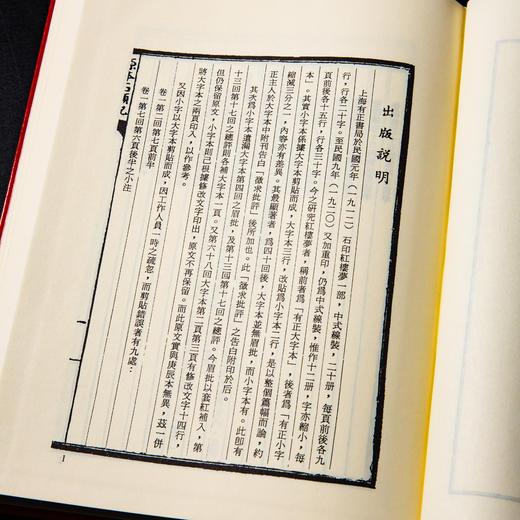 出版說明
上海有正書局於民國元年（一九一二）石印紅樓夢一部，中式線裝，二十册，每頁前後各九
行，行各二十字。至民國九年（一九二〇）又加重印，仍爲中式線裝，惟作十二册，字亦縮小，每
頁前後各十五行，行各三十字。今之研究紅樓夢者，稱前者爲「有正大字本」，後者爲「有正小字
本」。其實小字本係據大字本剪貼而成，大字本三行，改貼爲小字本二行，是以整個篇幅而論，約
縮減三分之一，內容亦有差異。其最顯著者，爲四十回後，大字本並無眉批，而小字本有。此卽有
正主人於大字本中附刊告白「徵求批評」後所加也。此「徵求批評」之告白附印於后。
其次爲小字本遺漏大字本第四回之眉批，及第十三回第十七回之總評。今眉批以套紅補入，第
十三回第十七回之總評則各補大字本一頁。又第六十八回大字本第二頁第三頁有修改文字十四行，
但仍保留原文，小字本則已根據修改文字印出，原文不再保留。而此原文實與庚辰本無異，茲一併
將大字本之兩頁印入，以作參考。
又因小字以大字本剪貼而成，因工作人員一時之疏忽，而剪貼錯誤者有九處：
卷一第二回第七頁前半
卷一第七回第六頁後半之小注
1